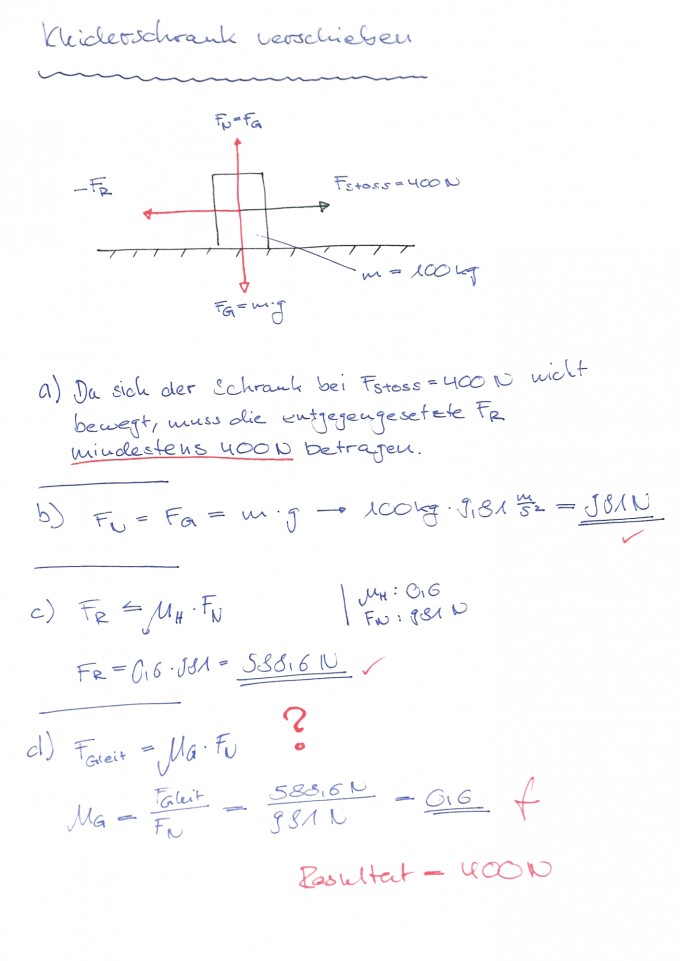 Kleiderschrank verschieben
F_N=F_G
-F_R
F_Stoss=400N
m = 100kg
F_G=m·g
a) Da sich der Schrank bei F_Stoss=400N nicht
bewegt, muss die entgegengesetzte F_R
mindestens 400N betragen.
b) F_N = F_G = m·g → 100kg·9,81 m/s² = 981N ✓
c) F_R ≤ μ_H·F_N
μ_H: 0,6
F_N: 981 N
F_R = 0,6·981 = 588,6 N ✓
d) F_Gleit = μ_G·F_N ?
μ_G = F_Gleit/F_N = 588,6N/981N = 0,6 f
Resultat = 400N